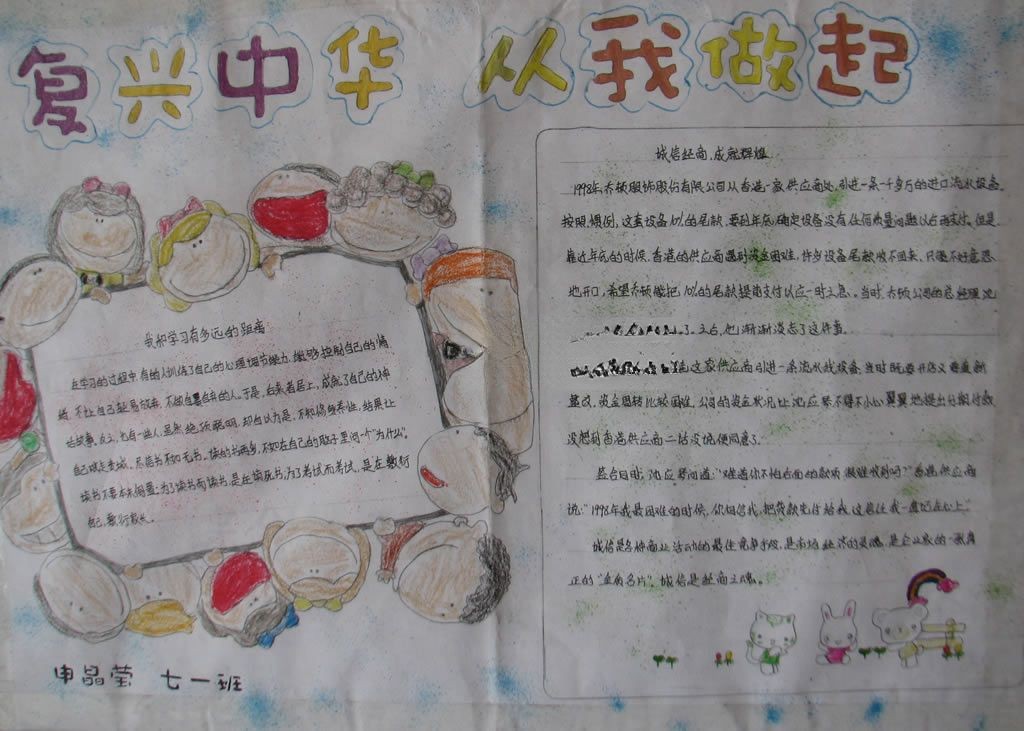 复兴中华 从我做起
我和学习有多远的距离
在学习的过程中,有的人训练了自己的心理调节能力,能够控制自己的情
绪,不让自己轻易放弃,不做自暴自弃的人。于是,后来者居上,成就了自己的神
话故事。反之,也有一些人,虽然绝顶聪明,却自以为是,不积极的养性,结果让
自己
尽信书不如无书。读的书再多,不如在自己的肚子里问一个“为什么”。
读书不要本末倒置:为了读书而读书,是在读死书;为了考试而考试,是在敷衍
自己,敷衍家长。
诚信经商,成就辉煌
1998年,乔顿服饰股份有限公司从香港一家供应商处,引进一条一千多万的进口流水设备。
按照惯例,这套设备10%的尾款,要到年底确定设备没有任何质量问题以后再支付。但是
靠近年底的时候,香港的供应商遇到资金困难,许多设备尾款收不回来,只得不好意思
地开口,希望乔顿能把10%的尾款提前支付以应一时之急。当时,乔顿公司的总经理沈
了。之后,他渐渐淡忘了这件事。
这家供应商引进一条流水线设备,当时既要开店又要重新
整改,资金周转比较困难。公司的资金状况让沈应琴不得不小心翼翼地提出分期付款
没想到香港供应商二话没说便同意了。
签合同时,沈应琴问道:“难道你不怕后面的款项很难收到吗?”香港供应商
说:“1998年我最困难的时候,你相信我,把货款先付给我,这些让我一直记在心上。”
诚信是各种商业活动的最佳竞争手段,是市场经济的灵魂,是企业家的一张真
正的“金质名片”。诚信是经商之魂。
申晶莹 七一班